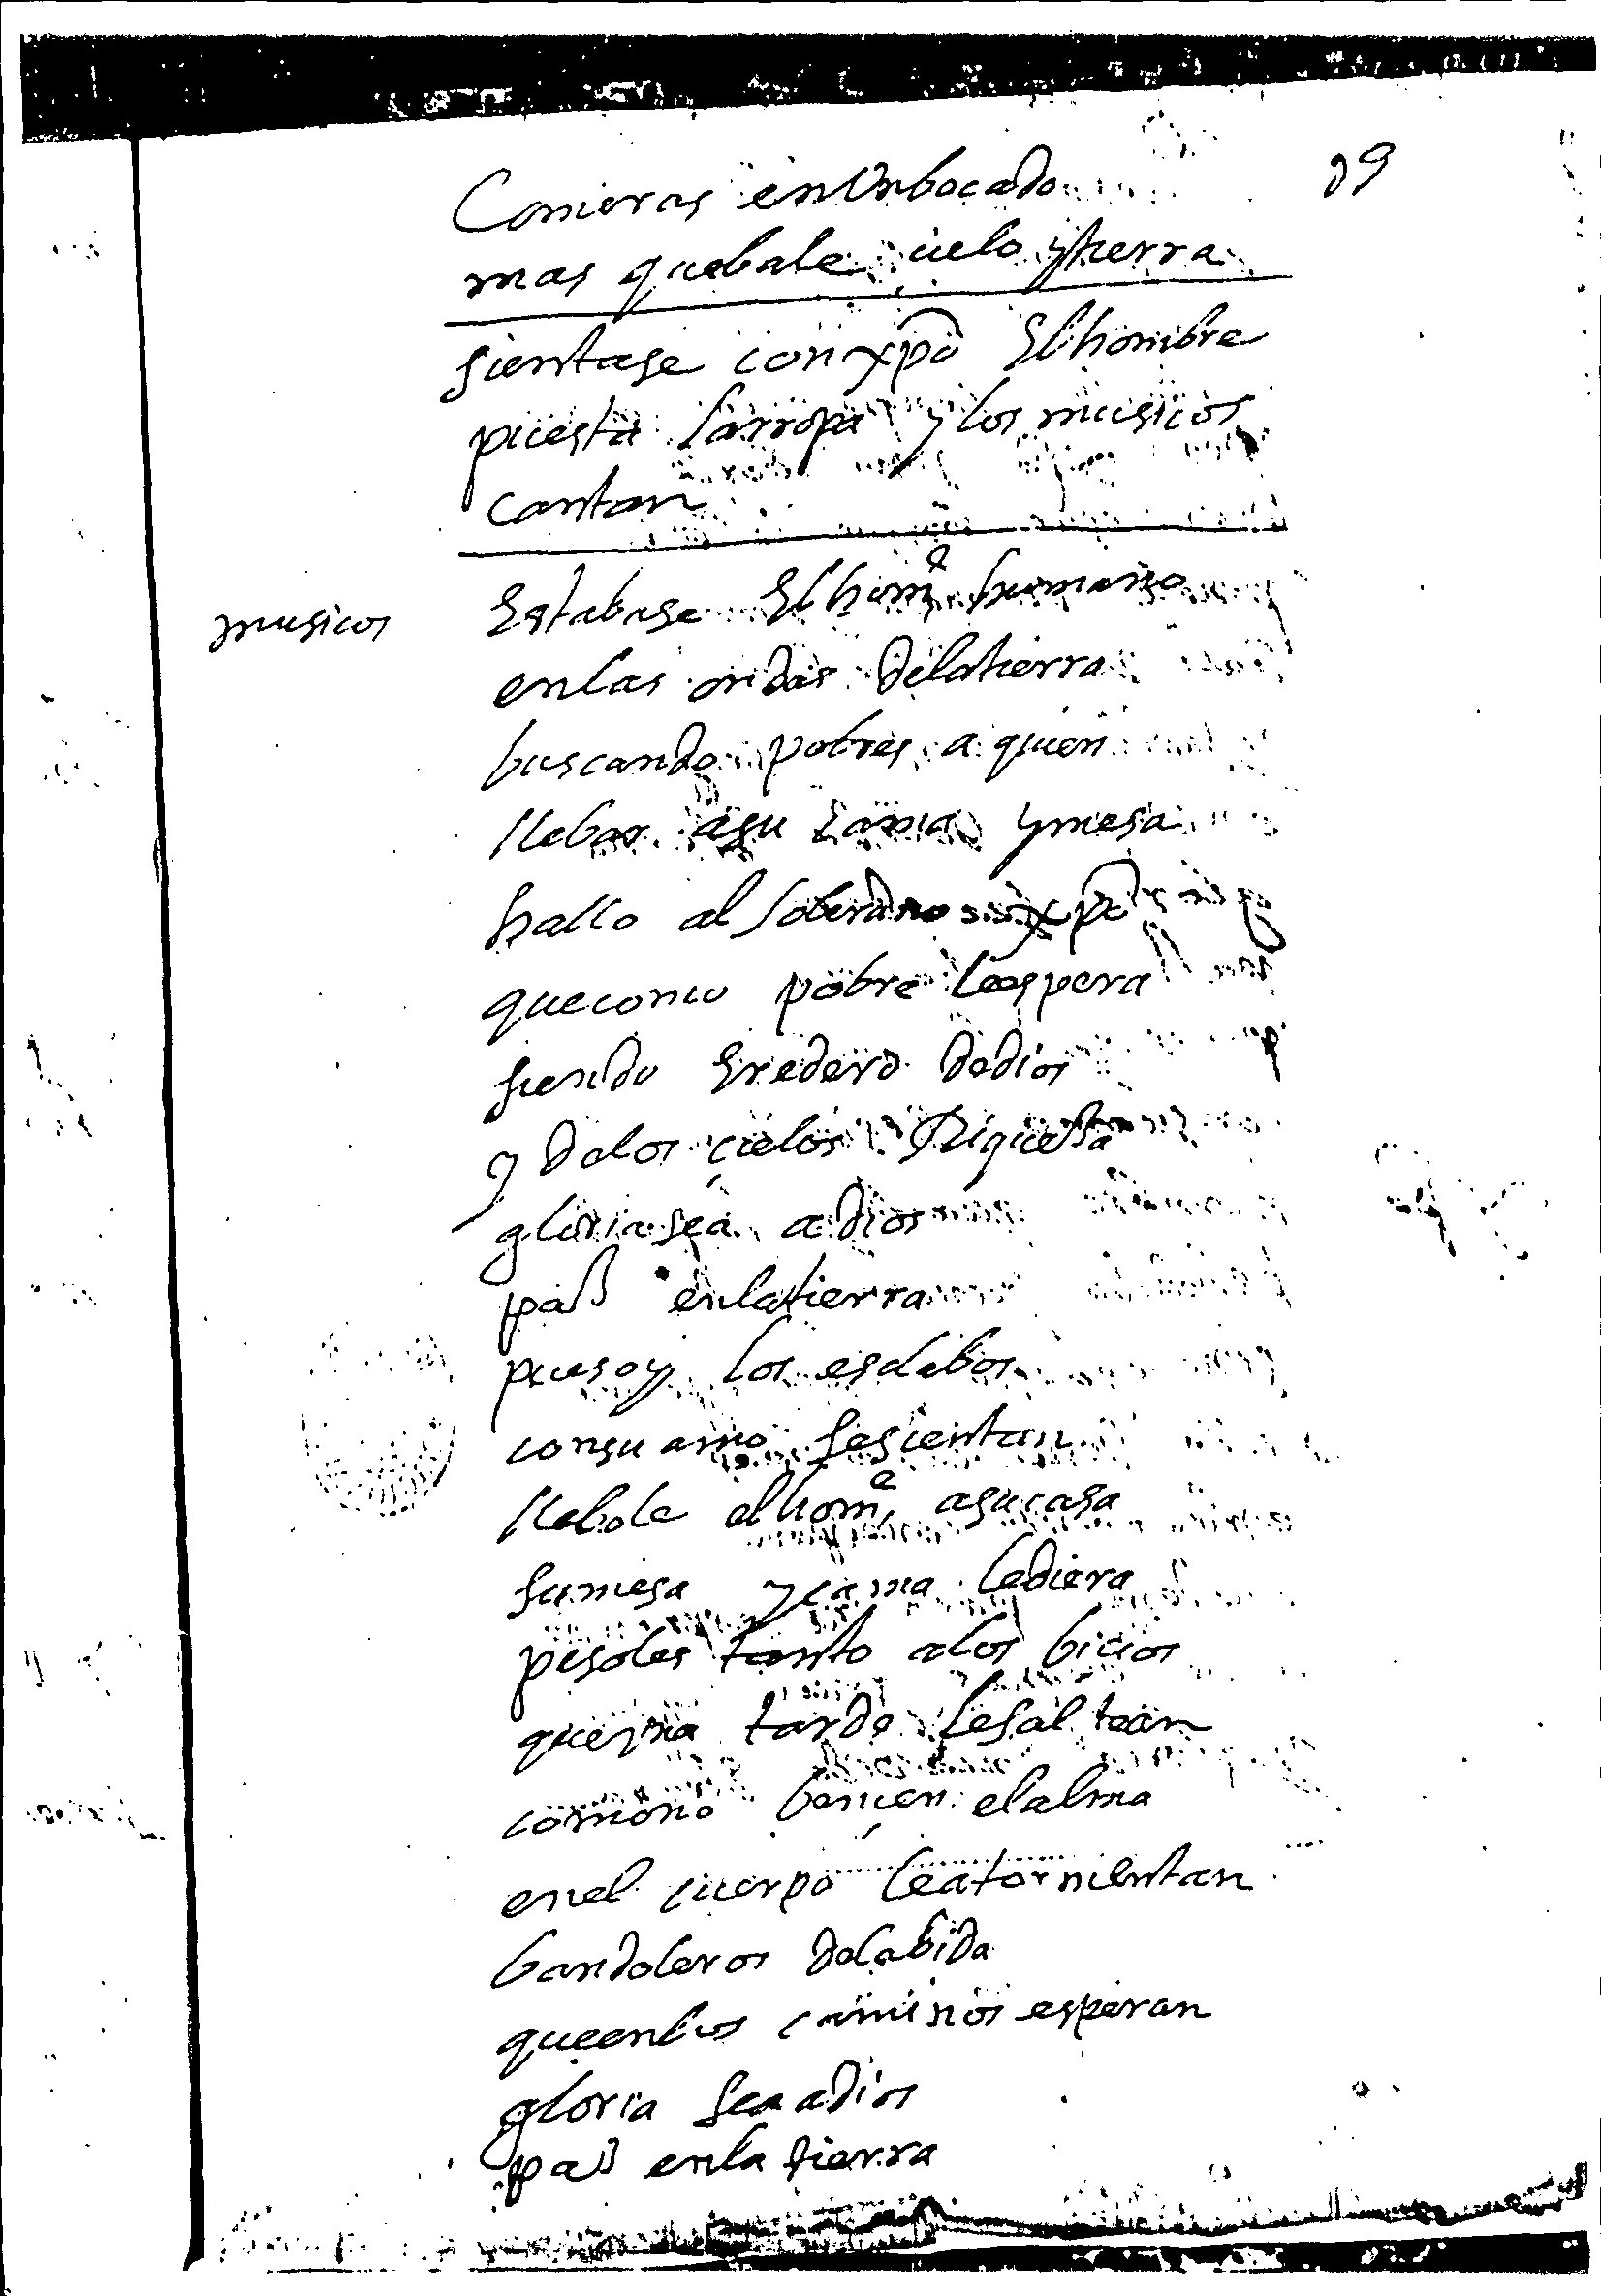 39
Comeras en Un bocado
mas que bale cielo y tierra
sientase con xpo El hombre
puesta la rropa y los musicos
cantan
musicos Estabase El home humano
en las ondas de la tierra
buscando pobres a quien
llebar a su cama y mesa
hallo al soberano xpo
que como pobre le espera
siendo Eredero de dios
y de los çielos Riquesa
gloria sea a dios
pas en la tierra
pues oy los esclabos
con su amo se sientan
llebole el home a su casa
su mesa y cama le diera
pesoles tanto a los bicios
que una tarde le saltean
como no bençen el alma
en el cuerpo le atormentan
bandoleros de la bida
que en los caminos esperan
gloria sea a dios
pas en la tierra